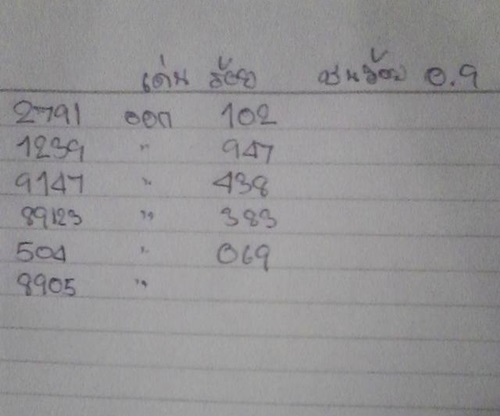 เด่น ร้อย ชนร้อย 0.9
2791 ออก 102
1239 " 947
9147 " 438
89123 " 383
504 " 069
8905 "